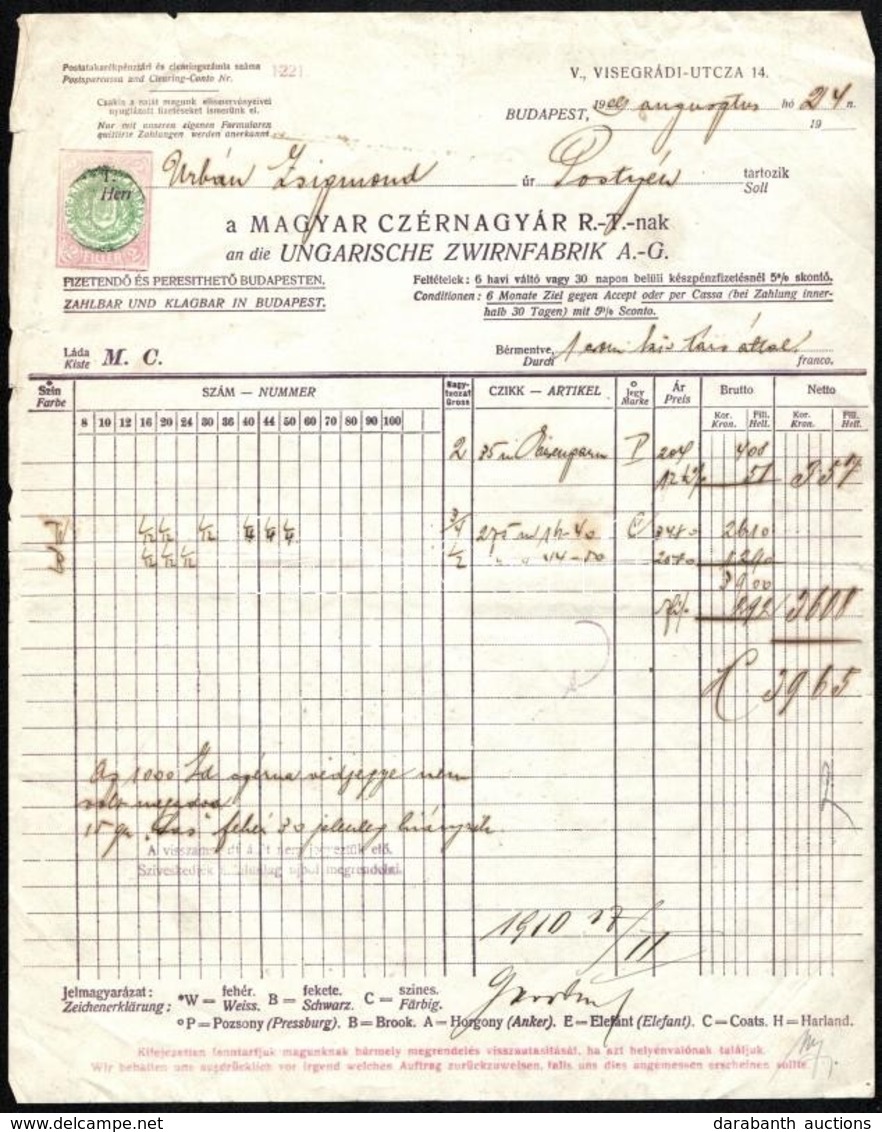 Postatakarékpénztári és clearingszámla száma 1221.
Postsparcassa und Clearing-Conto Nr.
V., VISEGRÁDI-UTCZA 14.
Csakis a saját magunk elismervényeivel
nyugtázott fizetéseket ismerünk el.
Nur mit unseren eigenen Formularen
quittirte Zahlungen werden anerkannt
BUDAPEST, 1909 augusztus hó 24 n.
19
Urbán Zsigmond úr Postyén tartozik
Soll
FILLÉR
a MAGYAR CZÉRNAGYÁR R.-T.-nak
an die UNGARISCHE ZWIRNFABRIK A.-G.
FIZETENDŐ ÉS PERESITHETŐ BUDAPESTEN.
ZAHLBAR UND KLAGBAR IN BUDAPEST.
Feltételek: 6 havi váltó vagy 30 napon belüli készpénzfizetésnél 5% skontó.
Conditionen: 6 Monate Ziel gegen Accept oder per Cassa (bei Zahlung inner-
halb 30 Tagen) mit 5% Sconto.
Láda
Kiste M. C.
Bérmentve,
Durch franco.
Szín
Farbe
SZÁM — NUMMER
Nagy-
tuczat
Gross
CZIKK — ARTIKEL
Jegy
Marke
Ár
Preis
Brutto
Netto
8 10 12 16 20 24 30 36 40 44 50 60 70 80 90 100
Kor. Kron. Fill. Hell. Kor. Kron. Fill. Hell.
2 P 204 408
51 357
3/4 275 m 16-40 C 3480 2610
1/2 " " 44-50 1290
3900
292 3608
K 3965
Az 1000 Yd czérna védjegye nem
volt megadva
15 gr. fehér 30 jelenleg hiányzik.
Sziveskedjék ujból megrendelni.
1910 17/II
Jelmagyarázat:
Zeichenerklärung: *W = fehér. Weiss. B = fekete. Schwarz. C = szines. Färbig.
oP = Pozsony (Pressburg). B = Brook. A = Horgony (Anker). E = Elefánt (Elefant). C = Coats. H = Harland.
Kifejezetten fenntartjuk magunknak bármely megrendelés visszautasitását, ha azt helyénvalónak találjuk.
Wir behalten uns ausdrücklich vor irgend welchen Auftrag zurückzuweisen, falls uns dies angemessen erscheinen sollte.
darabanth auctions